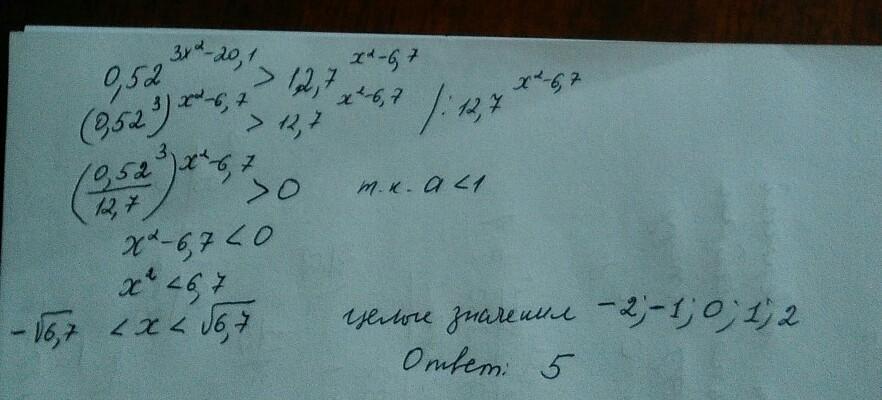 0,52^(3x²-20,1) > 12,7^(x²-6,7)
(0,52³)^(x²-6,7) > 12,7^(x²-6,7) /: 12,7^(x²-6,7)
(0,52³/12,7)^(x²-6,7) > 0 т.к. a<1
x²-6,7 < 0
x² < 6,7
-√6,7 < x < √6,7 целые значения -2; -1; 0; 1; 2
Ответ: 5